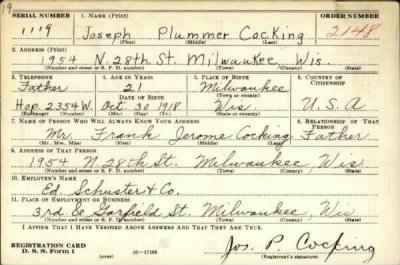 19
SERIAL NUMBER 1. NAME (Print) ORDER NUMBER
1119 Joseph Plummer Cocking 2148
(First) (Middle) (Last)
2. ADDRESS (Print)
1954 N. 28th St. Milwaukee, Wis.
(Number and street or R. F. D. number) (Town) (County) (State)
3. TELEPHONE 4. AGE IN YEARS 5. PLACE OF BIRTH 6. COUNTRY OF CITIZENSHIP
Father 21 Milwaukee
DATE OF BIRTH (Town or county)
Hop. 2354 W. Oct. 30 1918. Wis U.S.A
(Exchange) (Number) (Mo.) (Day) (Yr.) (State or country)
7. NAME OF PERSON WHO WILL ALWAYS KNOW YOUR ADDRESS 8. RELATIONSHIP OF THAT PERSON
Mr. Frank Jerome Cocking Father
(Mr., Mrs., Miss) (First) (Middle) (Last)
9. ADDRESS OF THAT PERSON
1954 N. 28th St. Milwaukee, Wis
(Number and street or R. F. D. number) (Town) (County) (State)
10. EMPLOYER'S NAME
Ed. Schuster & Co.
11. PLACE OF EMPLOYMENT OR BUSINESS
3rd & Garfield St. Milwaukee, Wis
(Number and street or R. F. D. number) (Town) (County) (State)
I AFFIRM THAT I HAVE VERIFIED ABOVE ANSWERS AND THAT THEY ARE TRUE.
REGISTRATION CARD
D. S. S. Form 1 (over) 16—17105 Jos. P. Cocking
(Registrant's signature)